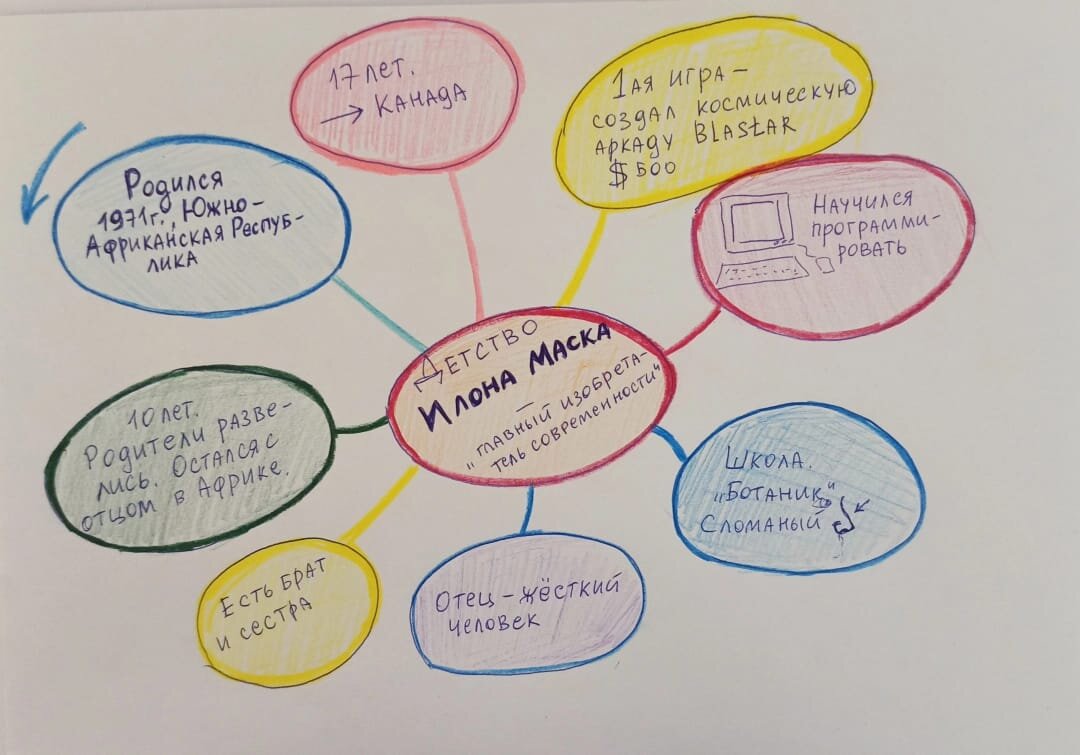 Детство
Илона Маска
—
„главный изобрета-
тель современности“
Родился
1971г., Южно-
Африканская Респуб-
лика
10 лет.
Родители разве-
лись. Остался с
отцом в Африке.
Есть брат
и сестра
Отец – жёсткий
человек
Школа.
„Ботаник“
Сломаный
Научился
программи-
ровать
1ая игра –
создал космическую
аркаду Blastar
$500
17 лет.
→ Канада